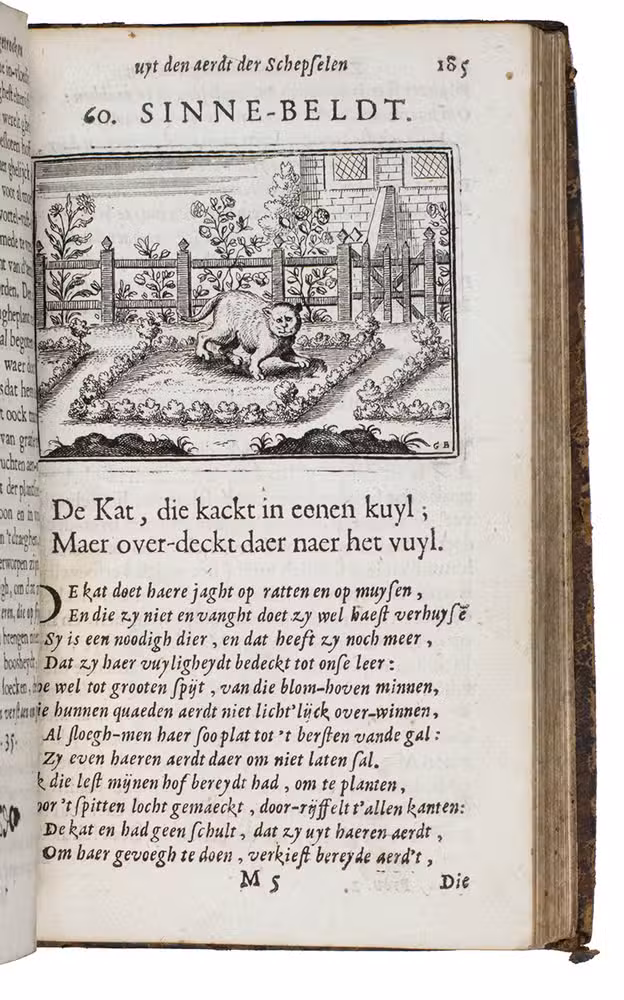 uyt den aerdt der Schepſelen 185
60. SINNE-BELDT.
G B
De Kat, die kackt in eenen kuyl;
Maer over-deckt daer naer het vuyl.
DE kat doet haere jaght op ratten en op muyſen,
En die zy niet en vanght doet zy wel haeſt verhuyſē
Sy is een noodigh dier, en dat heeft zy noch meer,
Dat zy haer vuyligheydt bedeckt tot onſe leer:
wel tot grooten ſpijt, van die blom-hoven minnen,
hunnen quaeden aerdt niet licht'lijck over-winnen,
Al ſloegh-men haer ſoo plat tot 't berſten vande gal:
Zy even haeren aerdt daer om niet laten ſal.
die leſt mijnen hof bereydt had, om te planten,
't ſpitten locht gemaeckt, door-rijffelt t'allen kanten:
De kat en had geen ſchult, dat zy uyt haeren aerdt,
Om haer gevoegh te doen, verkieſt bereyde aerd't,
M 5 Die